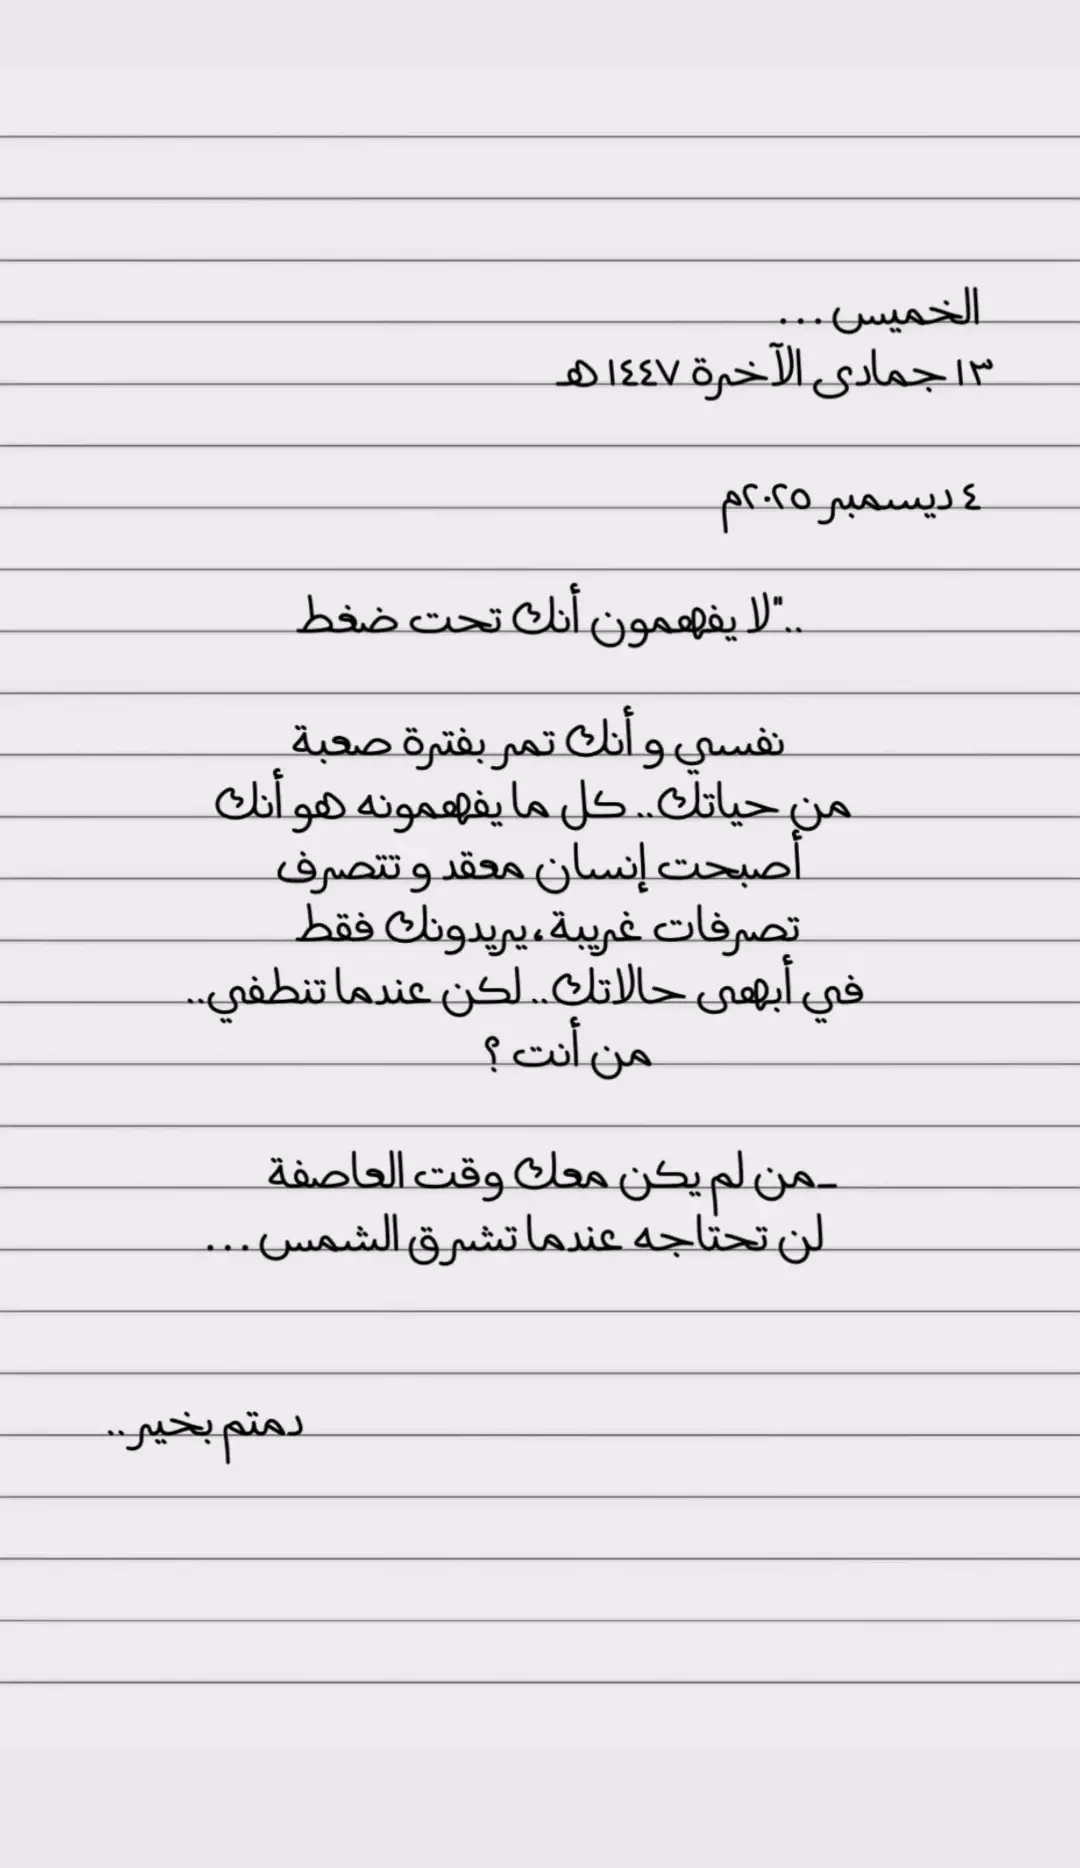 الخميس...
١٣ جمادى الآخرة ١٤٤٧هـ
٤ ديسمبر ٢٠٢٥م
.."لا يفهمون أنك تحت ضغط
نفسي و أنك تمر بفترة صعبة
من حياتك.. كل ما يفهمونه هو أنك
أصبحت إنسان معقد و تتصرف
تصرفات غريبة،يريدونك فقط
في أبهى حالاتك.. لكن عندما تنطفي..
من أنت ؟
_من لم يكن معك وقت العاصفة
لن تحتاجه عندما تشرق الشمس...
دمتم بخير..